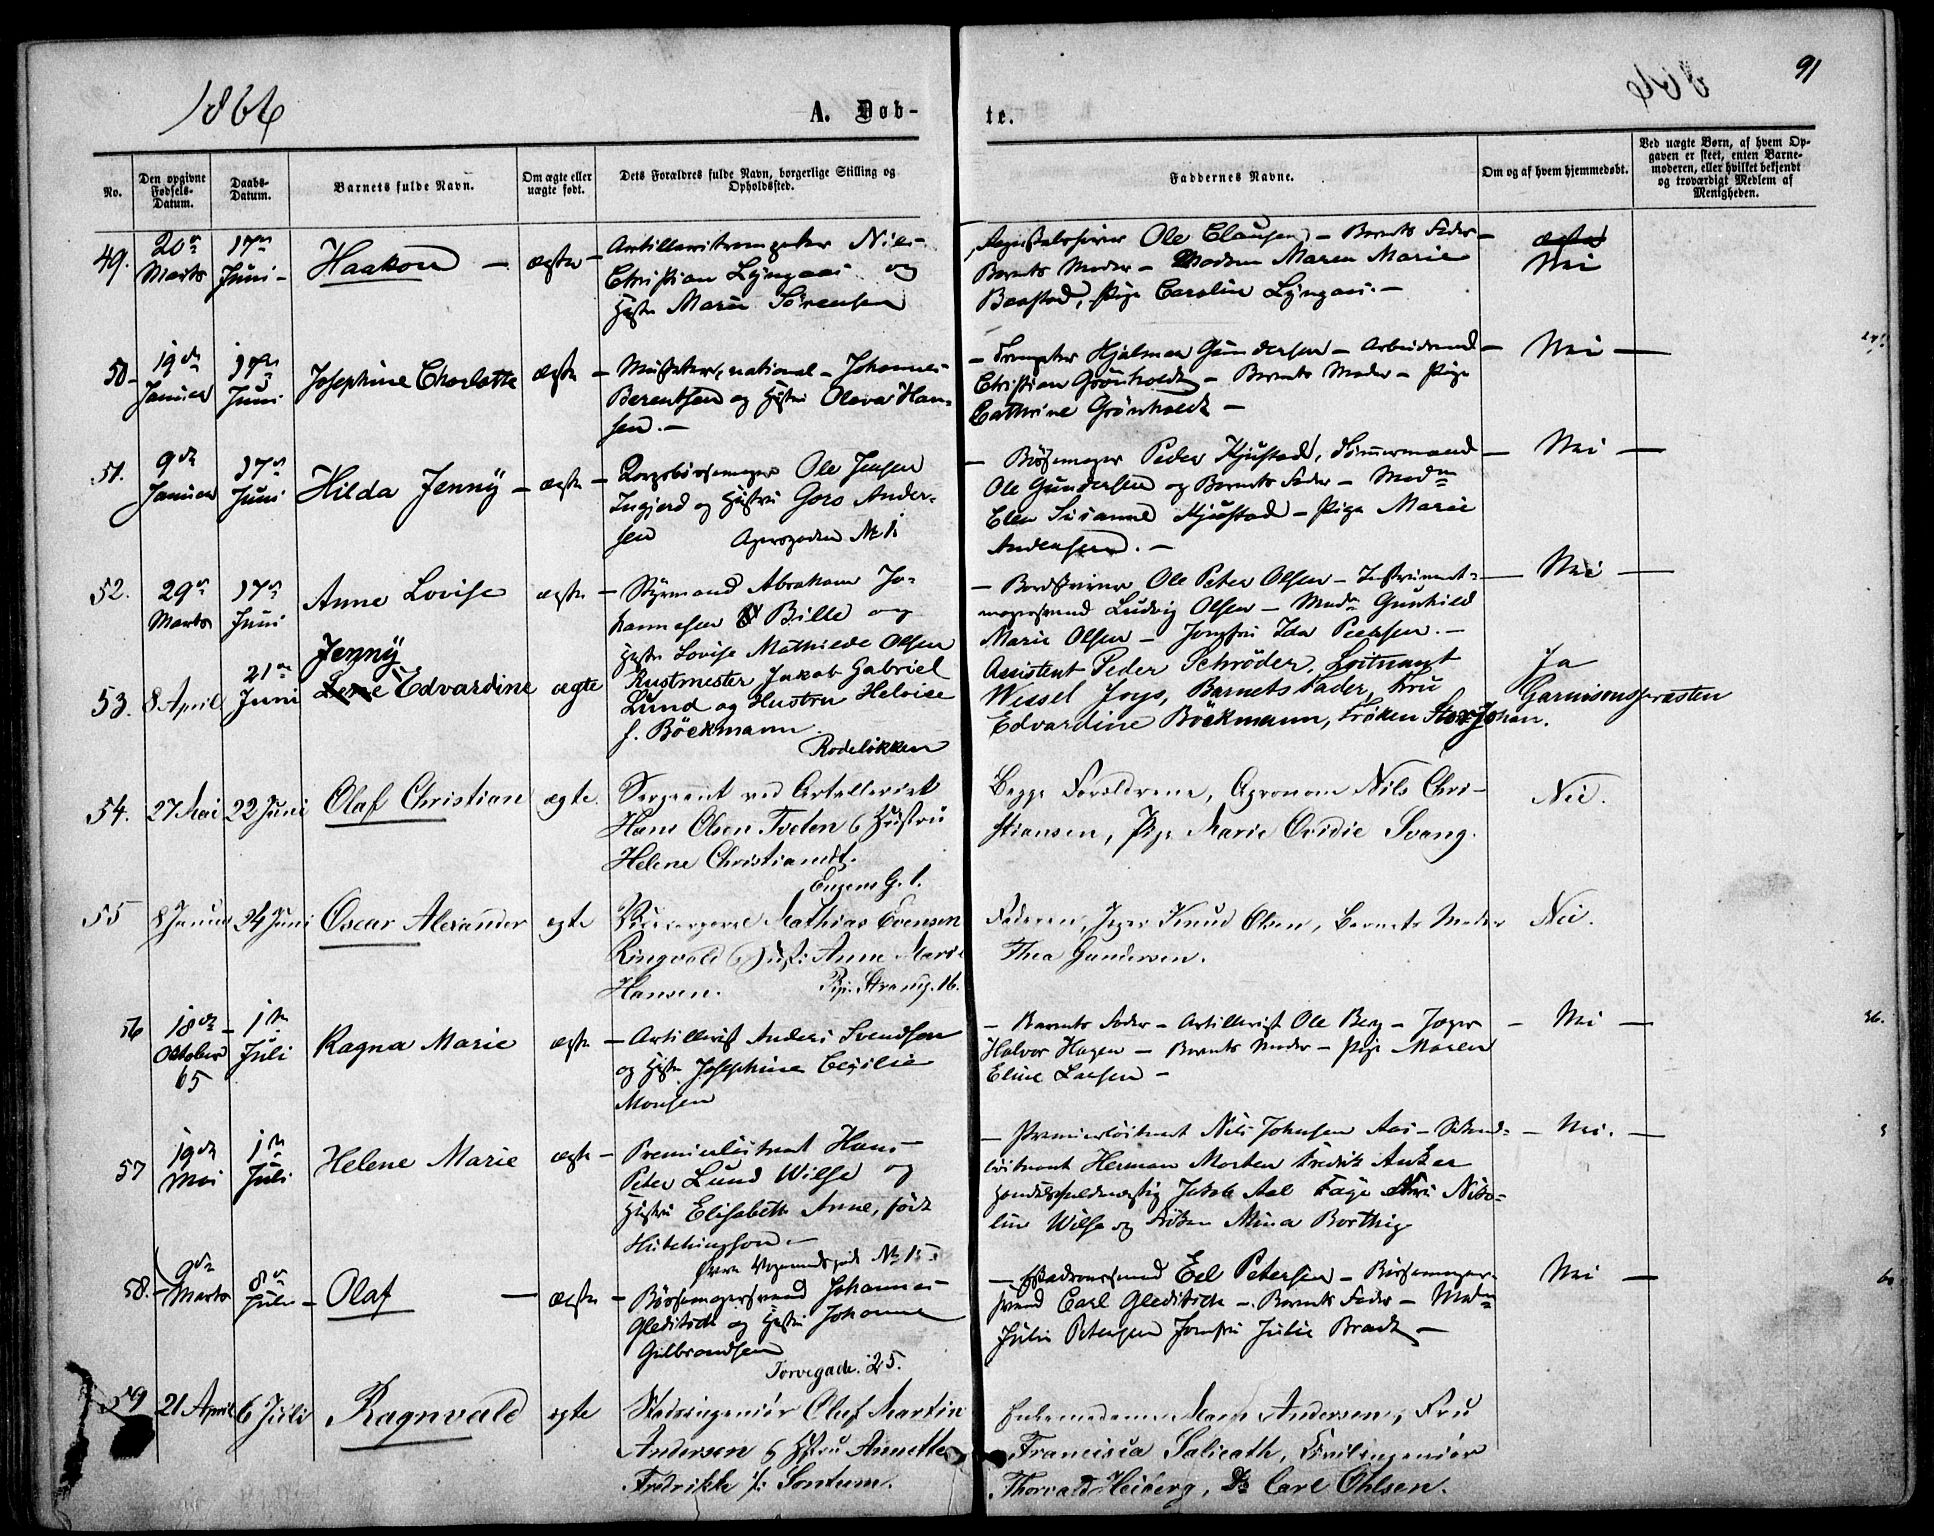 1866
A. Døb-
te.
91
No.
Den opgivne Fødsels-Datum.
Daabs-Datum.
Barnets fulde Navn.
Om ægte eller uægte født.
Dets Forældres fulde Navn, borgerlige Stilling og Opholdssted.
Faddernes Navne.
Om og af hvem hjemmedøbt.
Ved uægte Børn, af hvem Opgaven er skeet, enten Barnemoderen, eller hvilket bekjendt og troværdigt Medlem af Menigheden.
49. 20de Marts 17de Juni Haakon ægte
Artilleritrompeter Niels
Christian Lyngaas og
Hustru Marie Sørensen
Ole Clausen - Barnets Fader -
Barnets Moder - Madam Maren Marie
Baastad, Pige Caroline Lyngaas. -
Nei
50 19de Januar 17de Juni Josephine Charlotte ægte
Musketeer, national - Johannes
Berentsen og Hustru Olava Han-
sen. -
Trompeter Hjalmar Gundersen - Arbeidsmand
Christian Grønholdt - Barnets Moder - Pige
Cathrine Grønholdt -
Nei
51. 9de Januar 17de Juni Hilda Jenny ægte
Korpsbøssemager Ole Jensen
Ingjerd og Hustru Goro Ander-
sen Agersgaden No 1
Bøssemager Peder Kjustad, Tømmermand
Ole Gundersen og Barnets Fader - Madm
Elen Susanne Kjustad - Pige Marie
Andersen. -
Nei
52. 29de Marts 17de Juni Anne Lovise ægte
Styrmand Abraham Jo-
hannesen Bille og
Hustru Lovise Mathilde Olsen
Ole Peter Olsen - Instrument-
magersvend Ludvig Olsen - Madm Gunhild
Marie Olsen - Jomfru Ida Pedersen. -
Nei
53. 8 April 21de Juni Jenny Edvardine ægte
Rustmester Jakob Gabriel
Lund og Hustru Heloise
f. Böckmann.
Rodeløkken
Assistent Peder Schrøder, Løitnant
Wessel Joys, Barnets Fader, Fru
Edvardine Böckmann, Frøken
Ja
Garnisonspræsten
54. 27 Mai 22 Juni Olaf Christian ægte.
Sergeant ved Artilleriet
Hans Olsen Tveten & Hustru
Helene Christiansdt.
Eugens G. 1.
Begge Forældrene, Agronom Nils Chri-
stiansen, Pige Marie Ovidie Svang.
Nei.
55 8 Januar 24 Juni Oscar Alexander ægte
Mathias Evensen
Ringvold & Hust: Anne Marie
Hansen. Pip. Strang. 16.
Faderen, Jæger Knud Olsen, Barnets Moder
Thea Gundersen.
Nei.
56 18de Oktober 65 1ste Juli Ragna Marie ægte
Artillerist Anders Svendsen
og Hustru Josephine Cecilie
Monsen
Barnets Fader - Artillerist Ole Berg - Jæger
Halvor Hagen - Barnets Moder - Pige Maren
Eline Larsen -
Nei
57 19de Mai 1ste Juli Helene Marie ægte
Premierløitnant Hans
Peter Lund Wilse og
Hustru Elisabeth Anne, født
Hutchingson. -
Øvre Vognmandsgade No 15
Premierløitnant Nils Johnsen Aas - Sekond-
løitnant Herman Morten Fredrik Anker
Handelsfuldmægtig Jakob Aal Faye Fru Niko-
line Wilse og Frøken Mina Borthig
Nei.
58. 9de Marts 8de Juli Olaf ægte
Bøssemagersvend Johannes
Gleditsch og Hustru Johanne
Gulbrandsen
Torvegade. 25.
Petersen - Bøssemager-
svend Carl Gleditsch - Barnets Fader - Madm
Julie Petersen Jomfru Julie Brandt -
Nei
59 21 April 6 Juli Ragnvald ægte
Stadsingeniør Oluf Martin
Andersen & Hstru Annette
Fredrikke f: Sontum.
Enkemadame Andersen, Fru
Francisca Salicath, Civilingeniør
Thorvald Heiberg, Do Carl Ohlsen.